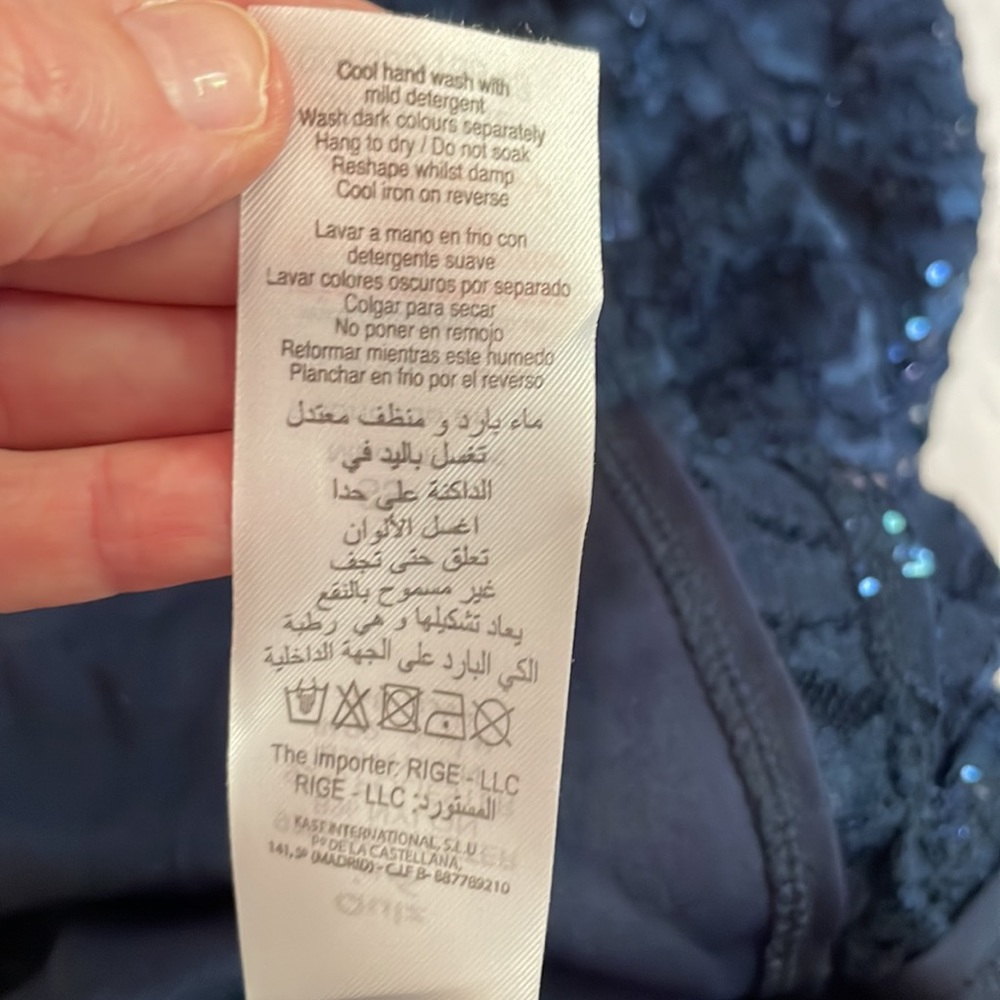 Cool hand wash with
mild detergent
Wash dark colours separately
Hang to dry / Do not soak
Reshape whilst damp
Cool iron on reverse
Lavar a mano en frio con
detergente suave
Lavar colores oscuros por separado
Colgar para secar
No poner en remojo
Reformar mientras este humedo
Planchar en frio por el reverso
ماء بارد و منظف معتدل
تغسل باليد في
الداكنة على حدا
اغسل الألوان
تعلق حتى تجف
غير مسموح بالنقع
يعاد تشكيلها و هي رطبة
الكي البارد على الجهة الداخلية
The importer: RIGE - LLC
المستورد: RIGE - LLC
KAST INTERNATIONAL, S.L.U
Pº DE LA CASTELLANA,
141,5º (MADRID) - C.I.F B- 887789210